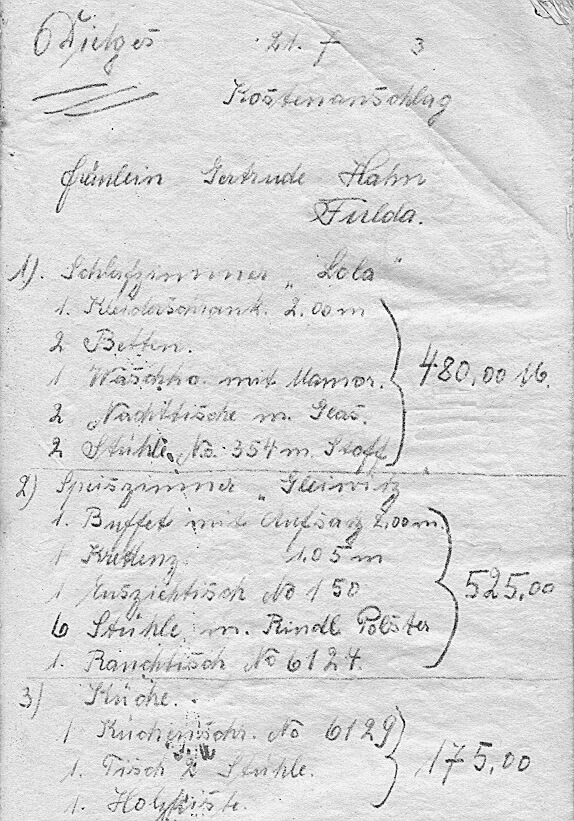 Dietges 21. 7 3
Kostenanschlag
Fräulein Gertrude Hahn
Fulda.
1). Schlafzimmer „Lola“
1. Kleiderschrank. 2.00 m
2 Betten.
1 Waschko. mit Mamor.
480,00 M.
2 Nachttische m. Glas.
2 Stühle No. 354 m. Stoff
2) Speiszimmer „Gleiwitz“
1. Buffet mit Aufsatz 2.00 m.
1 Kredenz 1.05 m
1 Ausziehtisch No 150
525,00
6 Stühle m. Rindl Polster
1. Rauchtisch No 6124
3) Küche.
1 Küchenschr. No 6129
1. Tisch 2 Stühle.
175,00
1. Holzkiste.